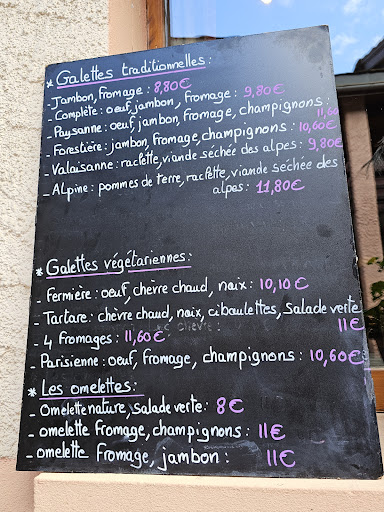 * Galettes traditionnelles :
- Jambon, fromage : 8,80€
- Complète : oeuf, jambon, fromage : 9,80€
- Paysanne : oeuf, jambon, fromage, champignons : 11,60
- Forestière : jambon, fromage, champignons : 10,60€
- Valaisanne : raclette, viande séchée des alpes : 9,80€
- Alpine : pommes de terre, raclette, viande séchée des
alpes : 11,80€
* Galettes végétariennes :
- Fermière : oeuf, chèvre chaud, noix : 10,10 €
- Tartare : chèvre chaud, noix, ciboulettes, salade verte
11€
- 4 fromages : 11,60€
- Parisienne : oeuf, fromage, champignons : 10,60€
* Les omelettes :
- Omelette nature, salade verte : 8€
- omelette fromage, champignons : 11€
- omelette fromage, jambon : 11€